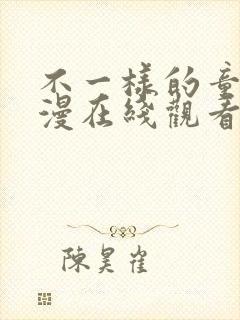 不一樣的童
漫在綫觀看
陳昊雀